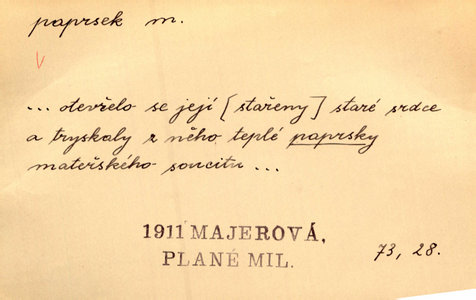 paprsek m.
V
... otevřelo se její [stařeny] staré srdce
a tryskaly z něho teplé paprsky
mateřského soucitu ...
1911 MAJEROVÁ,
PLANÉ MIL.
73, 28.